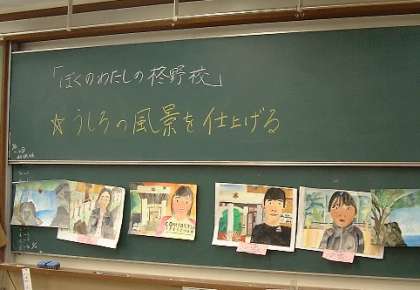 「ぼくのわたしの柊野校」
☆うしろの風景を仕上げる